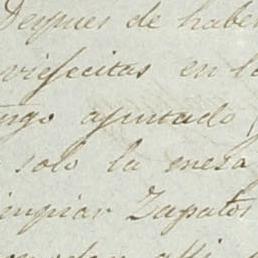 Despues de haber
viejecitas en l
ngo ajustado
solo la mesa
impiar Zapatos